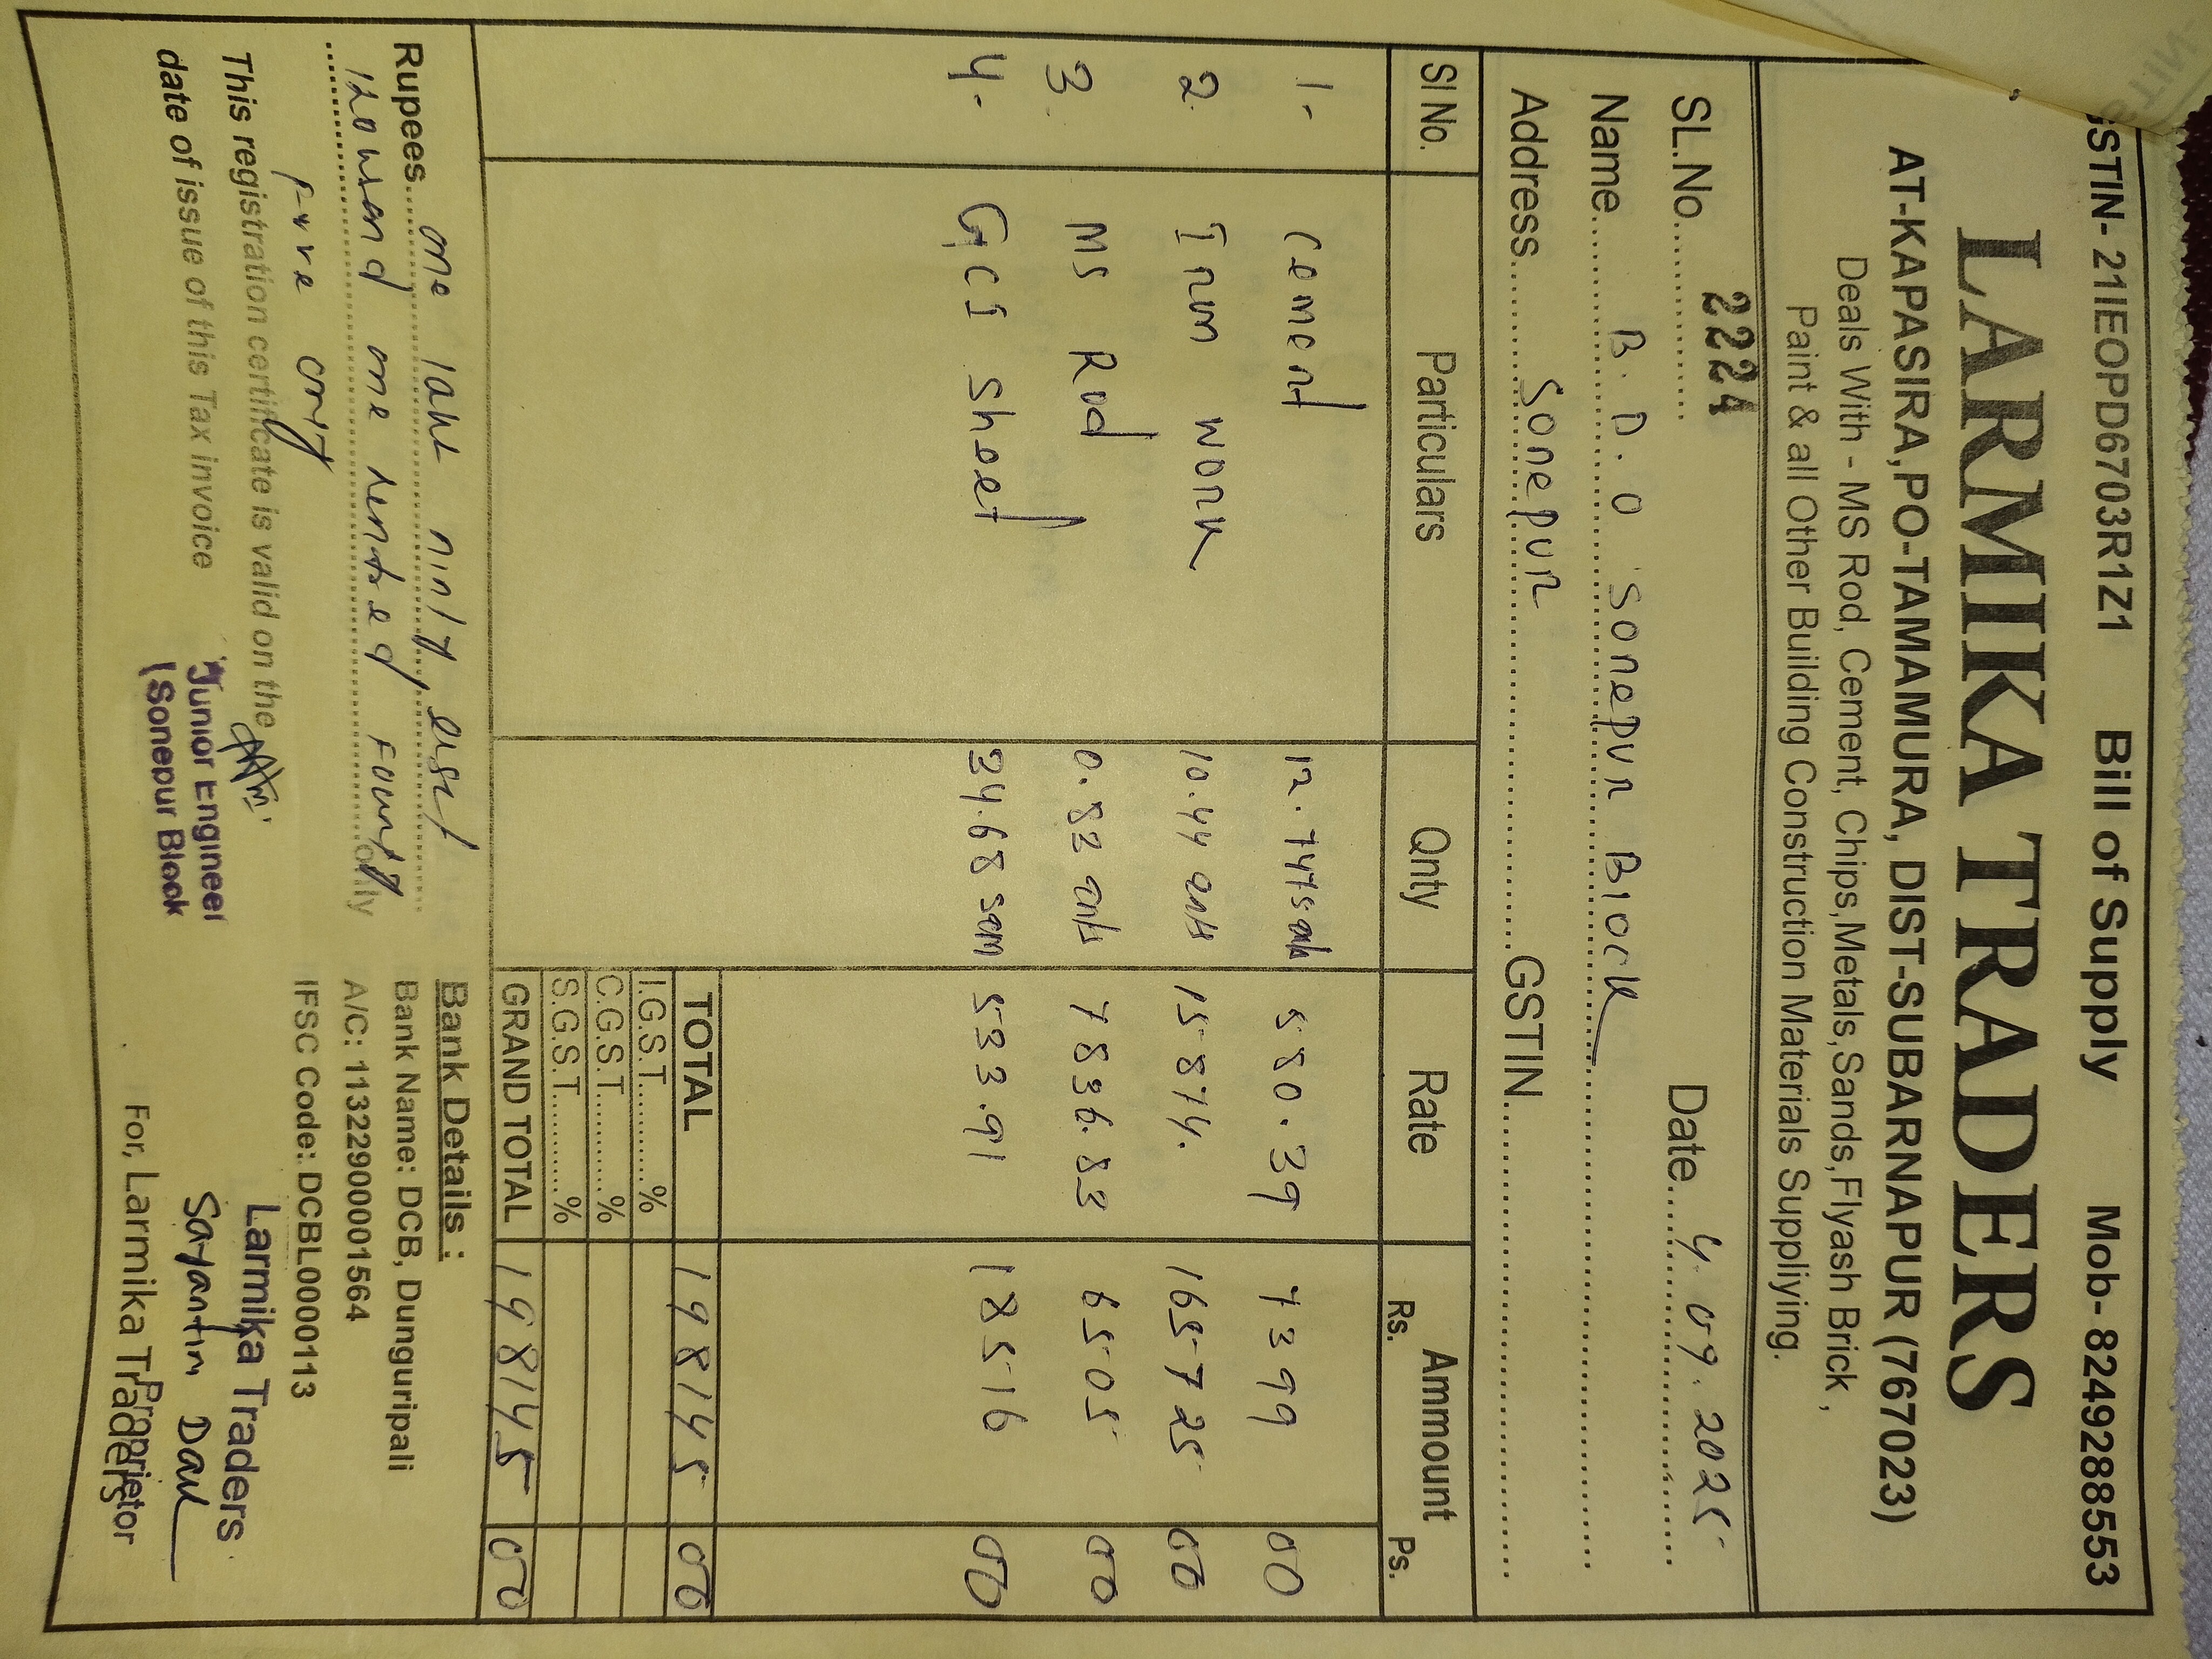 GSTIN- 21IEOPD6703R1Z1 Bill of Supply Mob- 8249288553
LARMIKA TRADERS
AT-KAPASIRA,PO-TAMAMURA, DIST-SUBARNAPUR (767023)
Deals With - MS Rod, Cement, Chips,Metals,Sands,Flyash Brick ,
Paint & all Other Building Construction Materials Suppliying.
SL.No. 2224 Date 4.09.2025
Name B.D.O Sonepur Block
Address Sonepur GSTIN
Sl No. Particulars Qnty Rate Ammount
Rs. Ps.
1- Cement 12.7475 580.39 7399 00
2. Irun work 10.44 qnts 15874. 165725 00
3. MS Rod 0.83 qnts 7836.83 6505 00
4. GCI Sheet 34.68 sqm 533.91 18516 00
TOTAL 198145 00
I.G.S.T. %
C.G.S.T. %
S.G.S.T. %
GRAND TOTAL 198145 00
Rupees one lakh ninty eist
thousand one hundred fourty only
five only
This registration certificate is valid on the
date of issue of this Tax invoice
Junior Engineer
Sonepur Block
Bank Details :
Bank Name: DCB, Dunguripali
A/C: 11322900001564
IFSC Code: DCBL0000113
Larmika Traders
Sayantin Dar
Proprietor
For, Larmika Traders